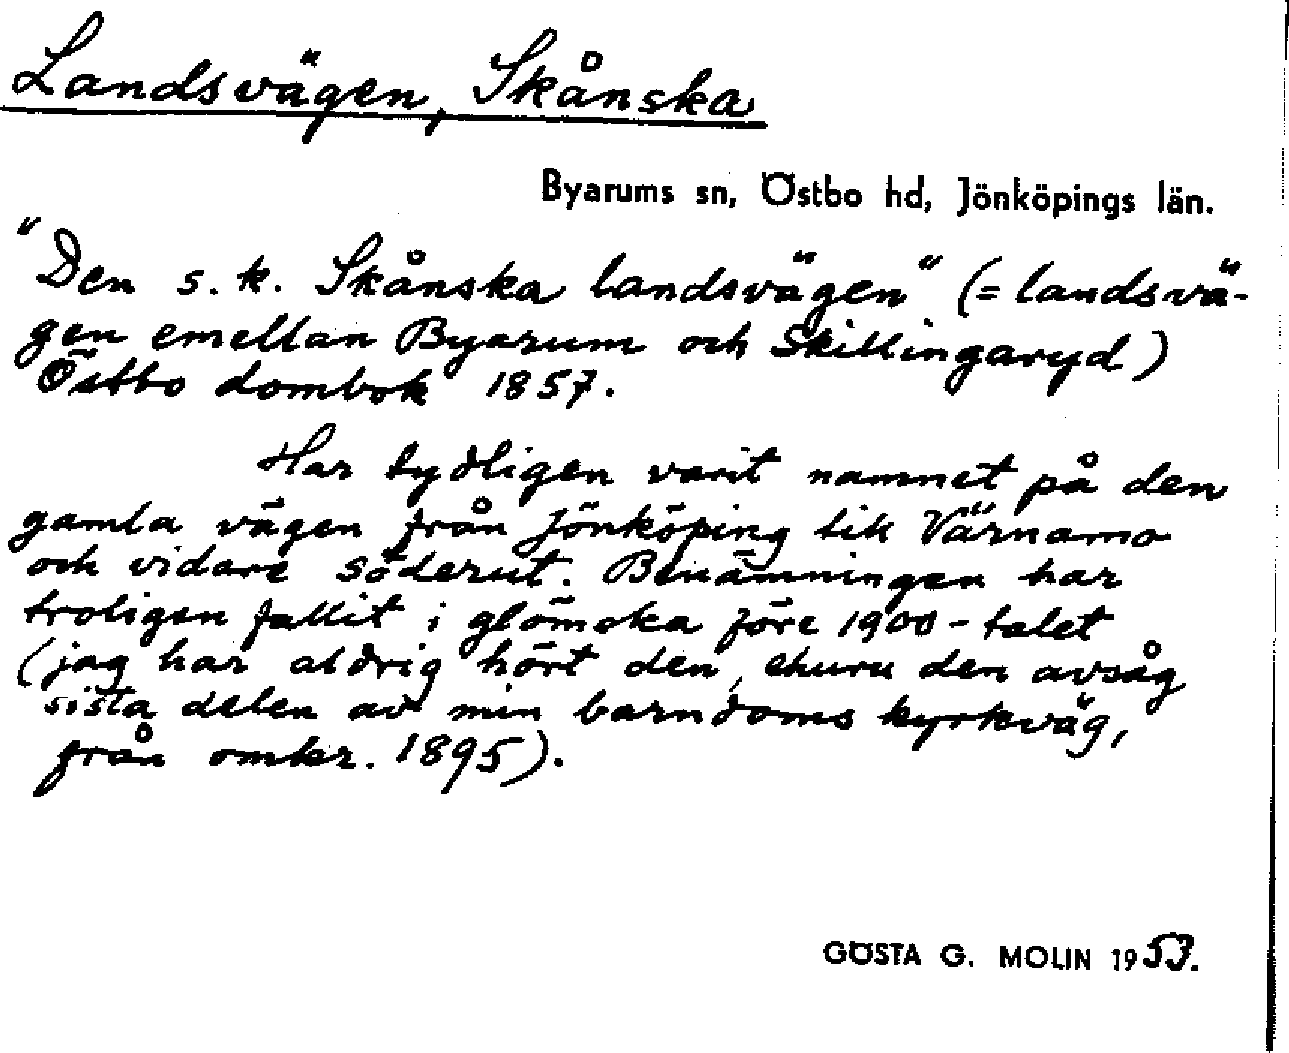 Landsvägen, Skånska
Byarums sn, Östbo hd, Jönköpings län.
"Den s.k. Skånska landsvägen" (= landsvä-
gen emellan Byarum och Skillingaryd)
Östbo dombok 1857.
Har tydligen varit namnet på den
gamla vägen från Jönköping till Värnamo
och vidare söderut. Benämningen har
troligen fallit i glömska före 1900-talet
(jag har aldrig hört den, ehuru den avsåg
sista delen av min barndoms kyrkväg,
från omkr. 1895).
GÖSTA G. MOLIN 1953.